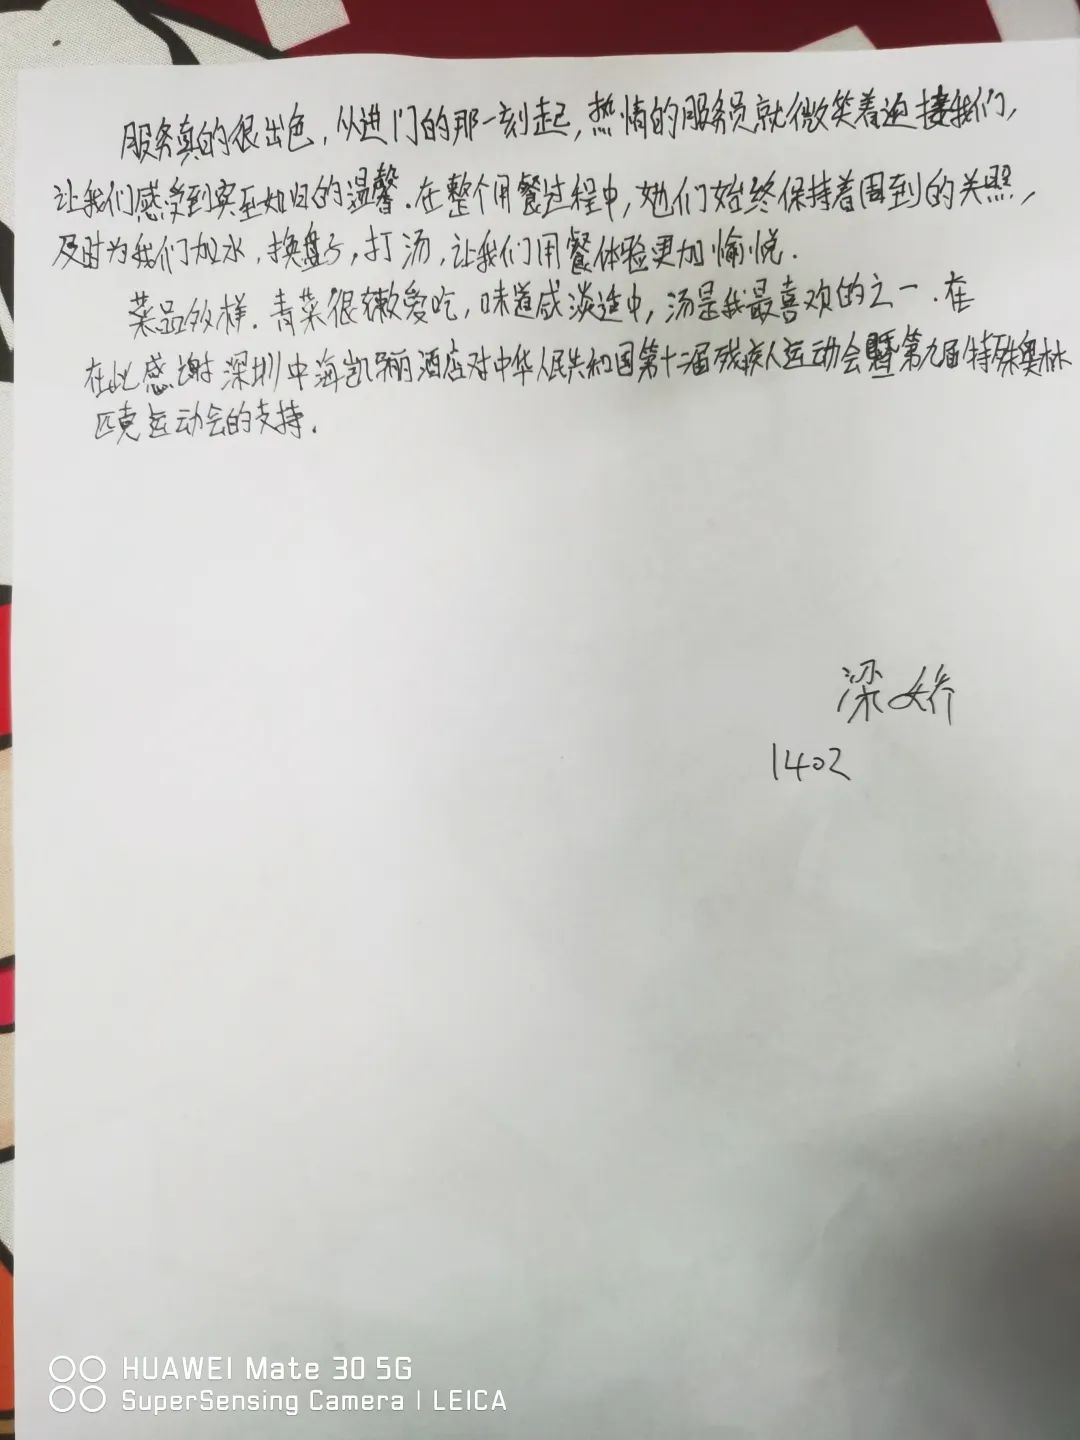 服务真的很出色，从进门的那一刻起，热情的服务员就微笑着迎接我们，
让我们感受到宾至如归的温馨．在整个用餐过程中，她们始终保持着周到的关照，
及时为我们加水，换盘子，打汤，让我们用餐体验更加愉悦．
菜品多样．青菜很嫩爱吃，味道咸淡适中，汤是我最喜欢的之一．在
在此感谢深圳中海凯骊酒店对中华人民共和国第十二届残疾人运动会暨第九届特殊奥林
匹克运动会的支持．
梁娇
1402
HUAWEI Mate 30 5G
SuperSensing Camera | LEICA